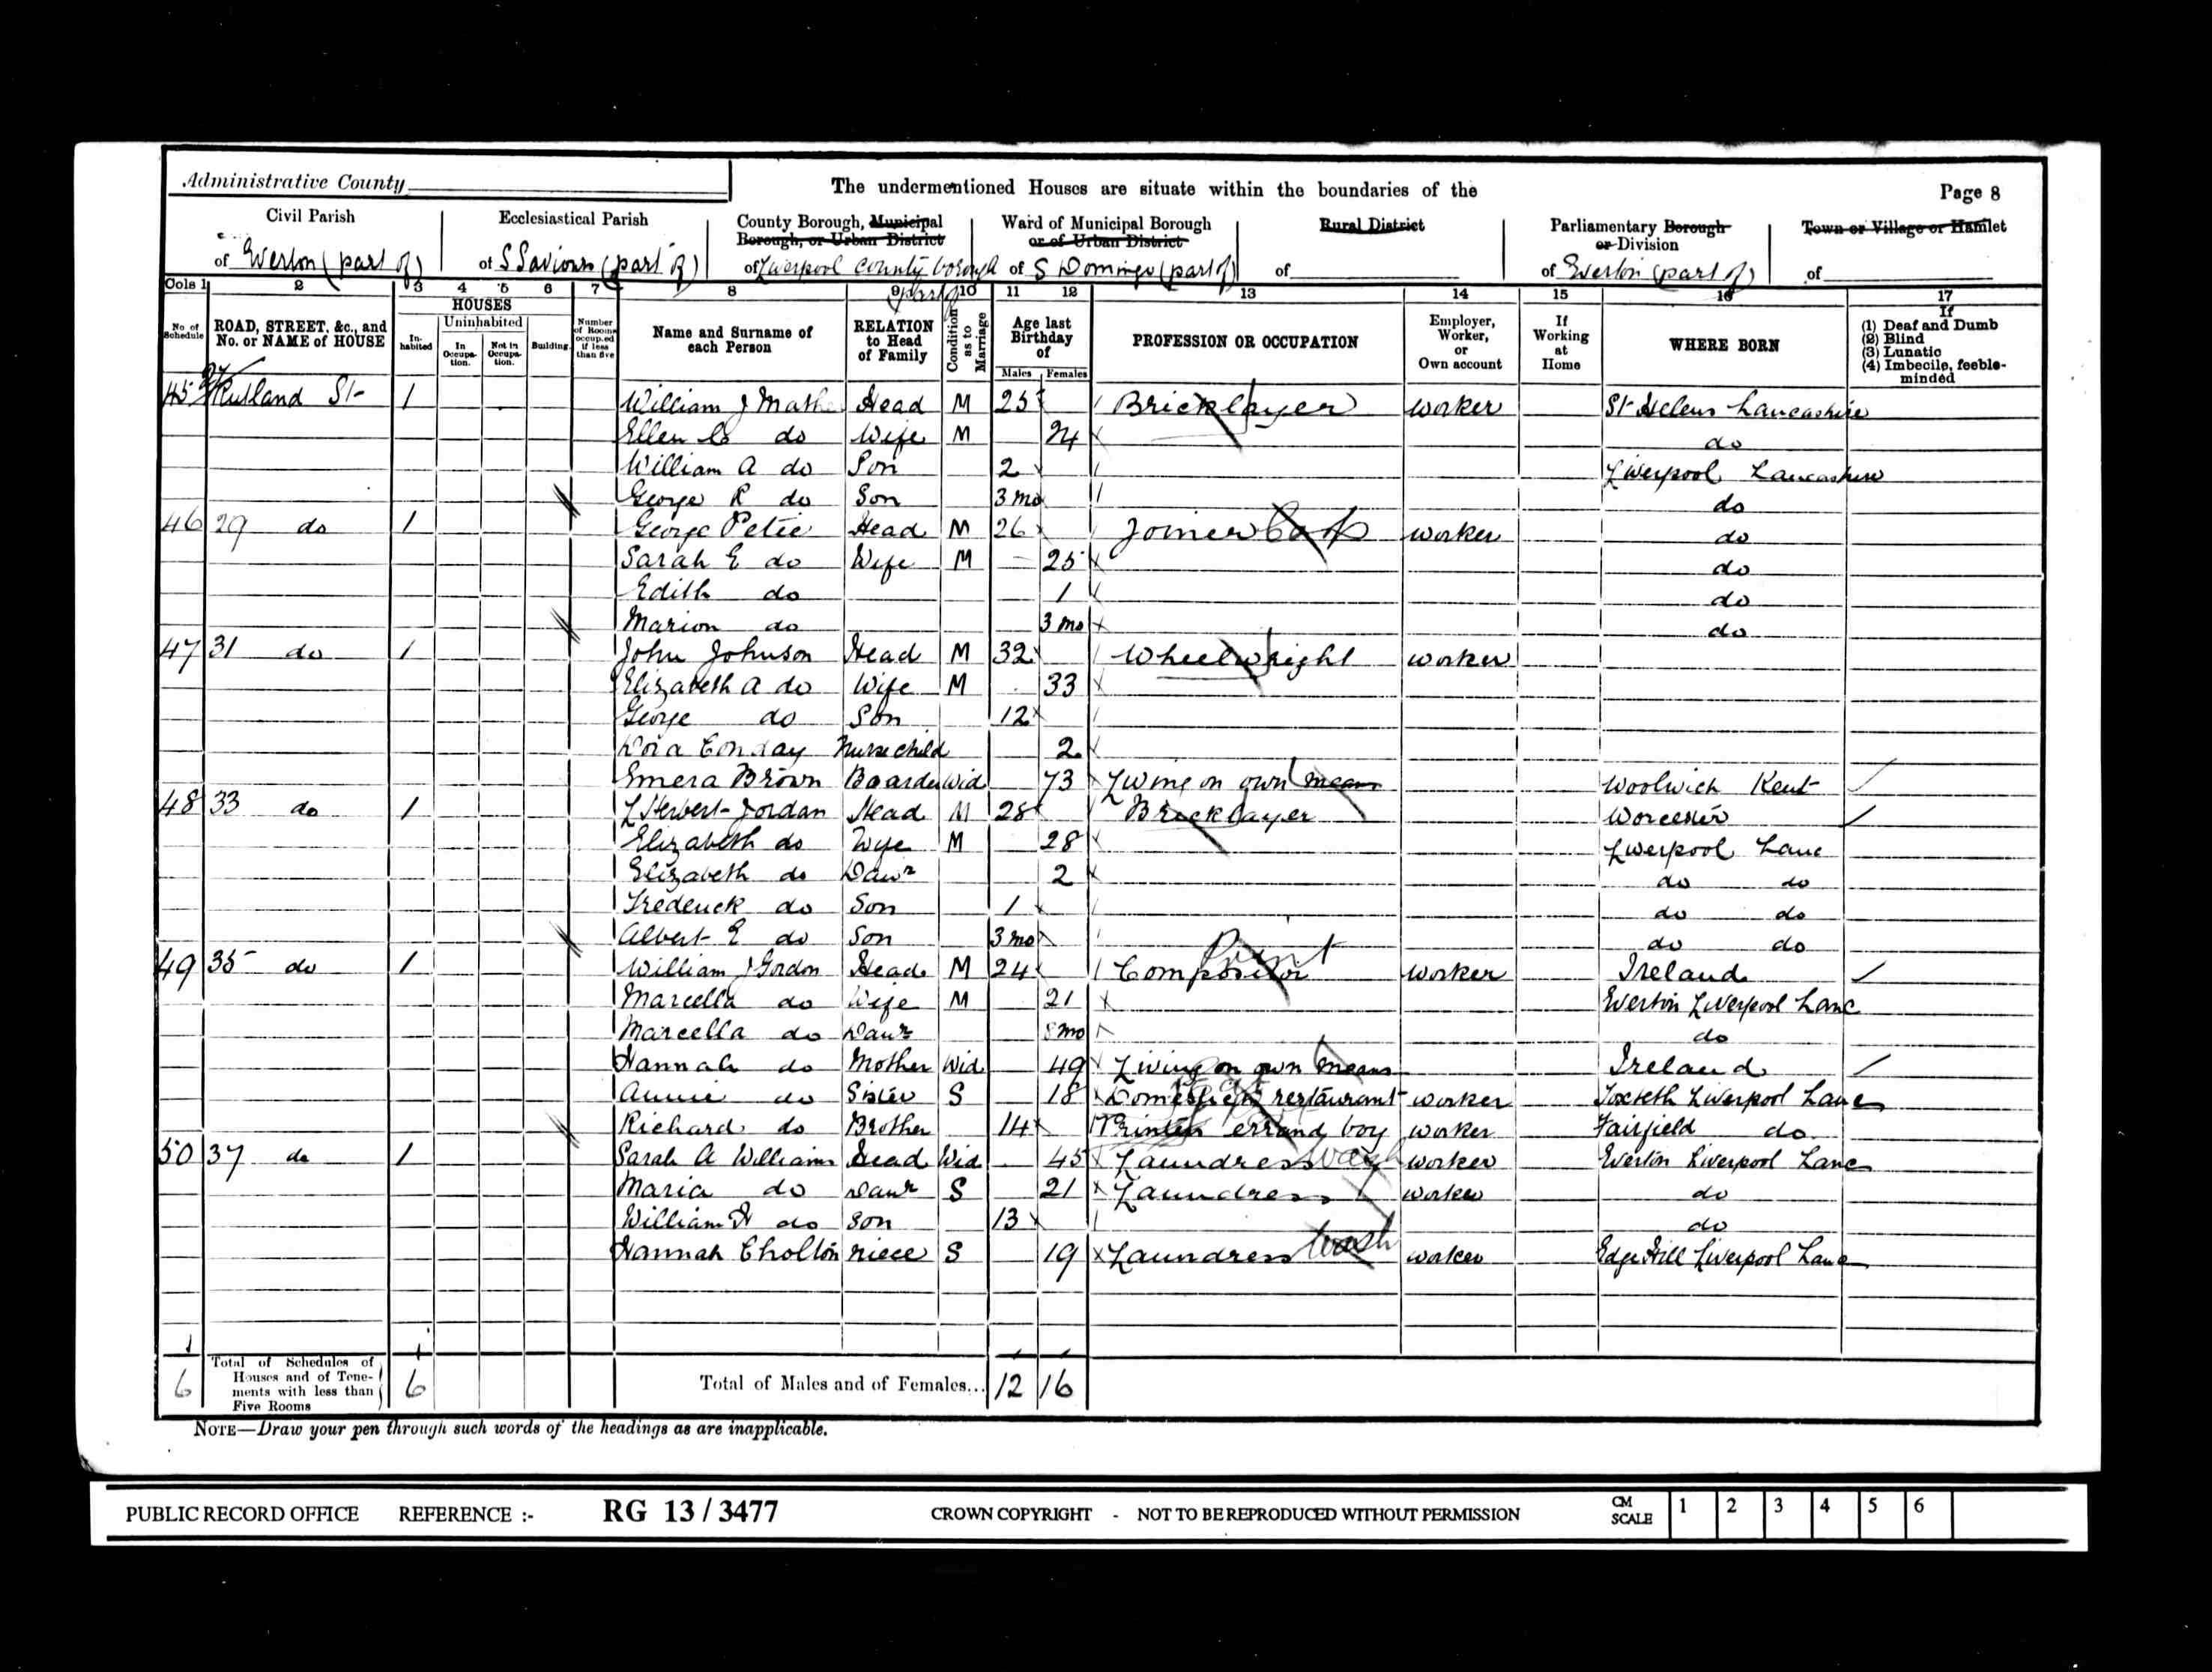 Administrative County
The undermentioned Houses are situate within the boundaries of the
Page 8
Civil Parish
of Everton (part of)
Ecclesiastical Parish
of S Saviours (part of)
County Borough, Municipal
Borough, or Urban District
of Liverpool County borough
part of
Ward of Municipal Borough
or of Urban District
of S Domingo (part of)
Rural District
of
Parliamentary Borough
or Division
of Everton (part of)
Town or Village or Hamlet
of
Cols 1 2 3 4 5 6 7 8 9 10 11 12 13 14 15 16 17
No of Schedule
ROAD, STREET, &c., and No. or NAME of HOUSE
HOUSES
Inhabited
Uninhabited
In Occupation.
Not in Occupation.
Building
Number of Rooms occupied if less than five
Name and Surname of each Person
RELATION to Head of Family
Condition as to Marriage
Age last Birthday of
Males Females
PROFESSION OR OCCUPATION
Employer, Worker, or Own account
If Working at Home
WHERE BORN
If
(1) Deaf and Dumb
(2) Blind
(3) Lunatic
(4) Imbecile, feeble-minded
45 27 Rutland St 1 William J Mathe Head M 25 Bricklayer worker St Helens Lancashire
Ellen do Wife M 24 do
William A do Son 2 Liverpool Lancashire
George R do Son 3 mo do
46 29 do 1 George Petie Head M 26 Joiner worker do
Sarah E do Wife M 25 do
Edith do 1 do
Marion do 3 mo do
47 31 do 1 John Johnson Head M 32 Wheelwright worker
Elizabeth A do Wife M 33
George do Son 12
Dora Conday Nurse child 2
Emera Brown Boarder Wid 73 Living on own means Woolwich Kent
48 33 do 1 Herbert Jordan Head M 28 Bricklayer Worcester
Elizabeth do Wife M 28 Liverpool Lanc
Elizabeth do Daur 2 do do
Frederick do Son 1 do do
Albert E do Son 3 mo do do
49 35 do 1 William J Gordon Head M 24 Compositor Print worker Ireland
Marcella do Wife M 21 Everton Liverpool Lanc
Marcella do Daur 8 mo do
Hannah do Mother Wid 49 Living on own means Ireland
Annie do Sister S 18 Domestic restaurant worker Toxteth Liverpool Lanc
Richard do Brother 14 errand boy worker Fairfield do
50 37 do 1 Sarah A Williams Head Wid 45 Laundress wash worker Everton Liverpool Lanc
Maria do Daur S 21 Laundress worker do
William H do Son 13 do
Hannah Cholton niece S 19 Laundress Wash worker Edge Hill Liverpool Lanc
6
Total of Schedules of Houses and of Tenements with less than Five Rooms
6
Total of Males and of Females... 12 16
NOTE—Draw your pen through such words of the headings as are inapplicable.
PUBLIC RECORD OFFICE REFERENCE :- RG 13 / 3477 CROWN COPYRIGHT - NOT TO BE REPRODUCED WITHOUT PERMISSION CM SCALE 1 2 3 4 5 6